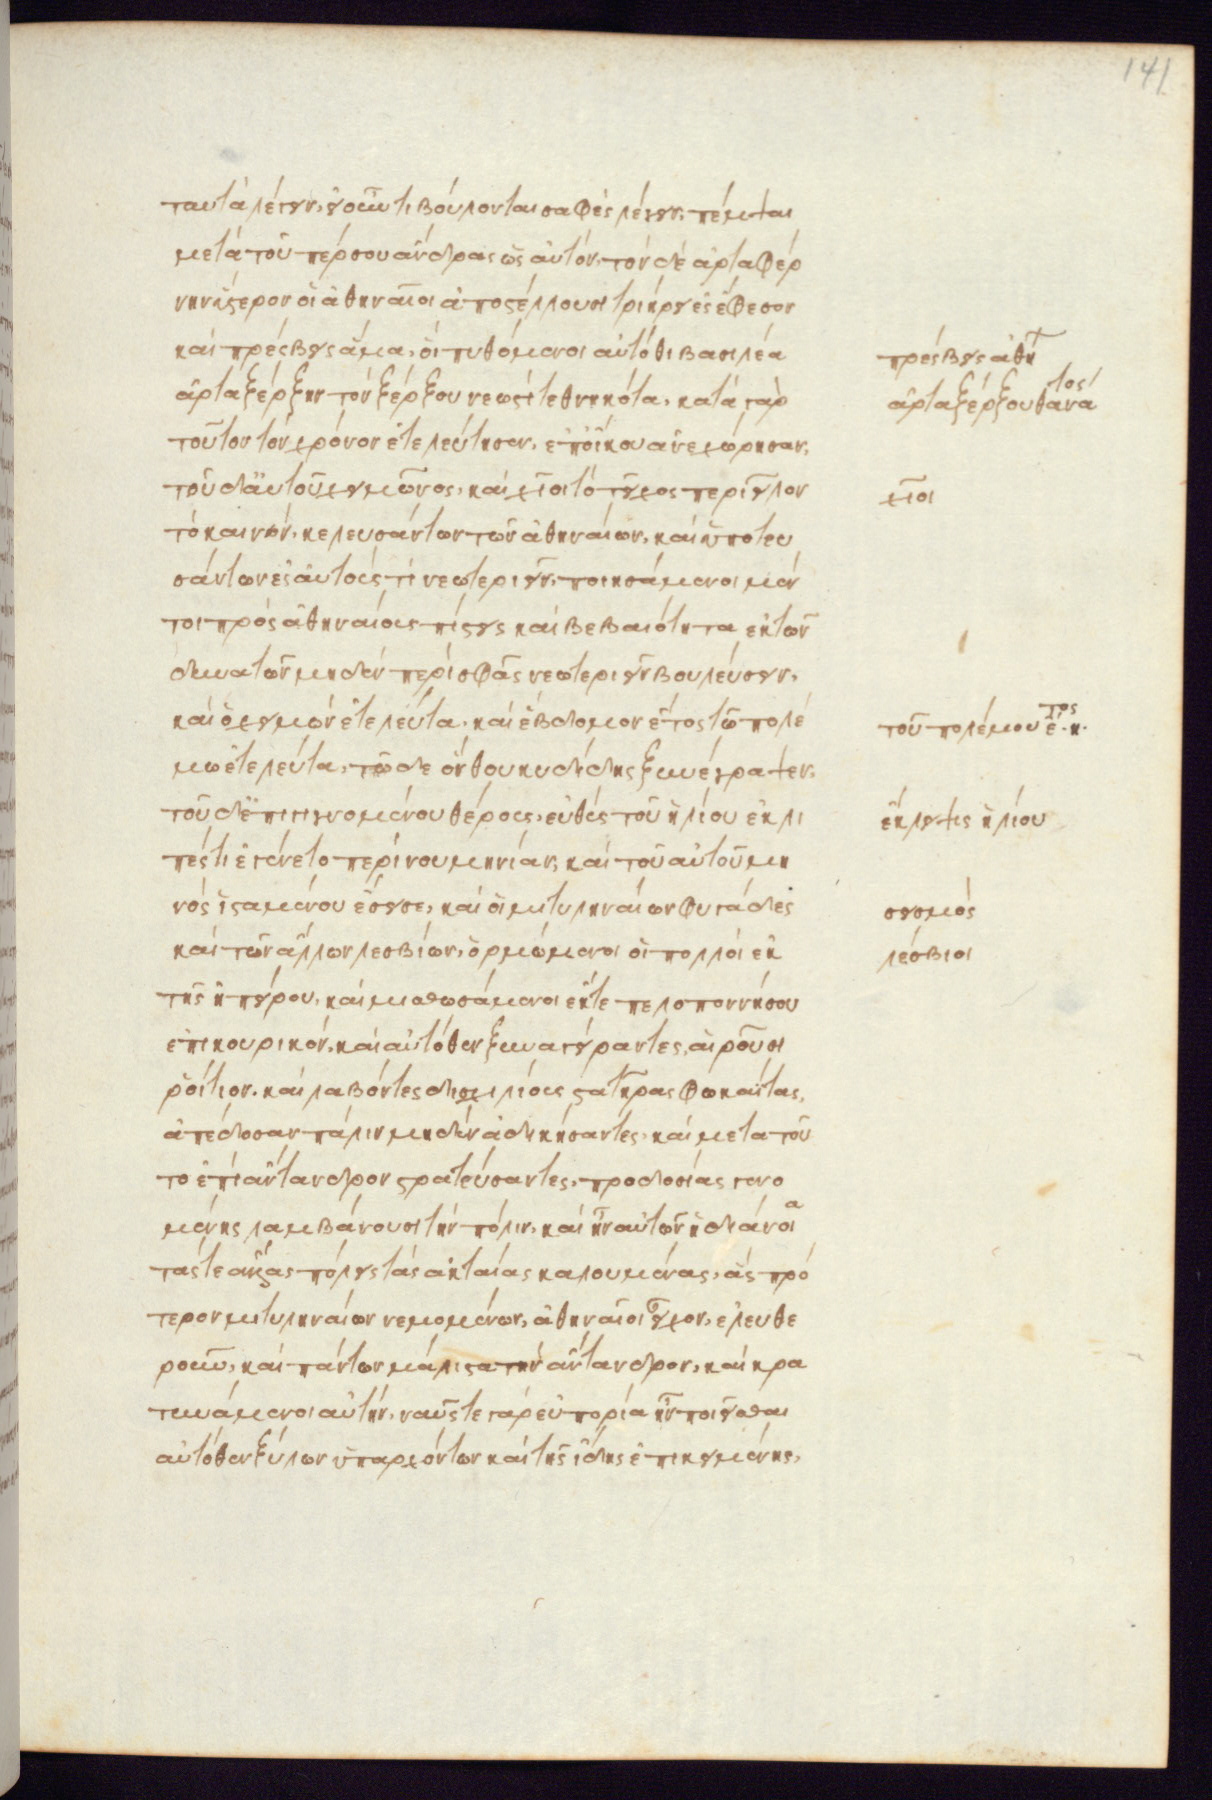 141
ταυτὰ λέγειν, εἰ οὖν τι βούλονται σαφὲς λέγειν, πέμψαι
μετὰ τοῦ πέρσου ἄνδρας ὡς αὐτόν, τὸν δὲ ἀρταφέρ
νην ὕστερον οἱ ἀθηναῖοι ἀποστέλλουσι τριήρει ἐς ἔφεσον
καὶ πρέσβεις ἅμα, οἳ πυθόμενοι αὐτόθι βασιλέα
πρέσβεις ἀθη
ἀρταξέρξην τὸν ξέρξου νεωστὶ τεθνηκότα, κατὰ γὰρ
ἀρταξέρξου θάνατος
τοῦτον τὸν χρόνον ἐτελεύτησεν, ἐπ' οἴκου ἀνεχώρησαν,
τοῦ δ' αὐτοῦ χειμῶνος, καὶ χῖοι τὸ τεῖχος περιεῖλον
χῖοι
τὸ καινόν, κελευσάντων τῶν ἀθηναίων, καὶ ὑποπτευ
σάντων ἐς αὐτούς τι νεωτεριεῖν, ποιησάμενοι μέν
τοι πρὸς ἀθηναίους πίστεις καὶ βεβαιότητα ἐκ τῶν
δυνατῶν μηδὲν περὶ σφᾶς νεωτεριεῖν βουλεύσειν,
καὶ ὁ χειμὼν ἐτελεύτα, καὶ ἕβδομον ἔτος τῷ πολέ
τοῦ πολέμου ἔτος .η.
μῳ ἐτελεύτα, τῷδε ὃν θουκυδίδης ξυνέγραψεν,
τοῦ δ' ἐπιγιγνομένου θέρους, εὐθὺς τοῦ ἡλίου ἐκλι
ἔκλειψις ἡλίου
πές τι ἐγένετο περὶ νουμηνίαν, καὶ τοῦ αὐτοῦ μη
νὸς ἱσταμένου ἔσεισε, καὶ οἱ μιτυληναίων φυγάδες
σεισμός
καὶ τῶν ἄλλων λεσβίων, ὁρμώμενοι οἱ πολλοὶ ἐκ
λέσβιοι
τῆς ἠπείρου, καὶ μισθωσάμενοι ἔκ τε πελοποννήσου
ἐπικουρικόν, καὶ αὐτόθεν ξυναγείραντες, αἱροῦσι
ῥοίτιον. καὶ λαβόντες δισχιλίους στατῆρας φωκαΐτας,
ἀπέδοσαν πάλιν μηδὲν ἀδικήσαντες, καὶ μετὰ τοῦ
το ἐπὶ ἄντανδρον στρατεύσαντες, προδοσίας γενο
μένης λαμβάνουσι τὴν πόλιν, καὶ ἦν αὐτῶν ἡ διάνοια
τάς τε ἄλλας πόλεις τὰς ἀκταίας καλουμένας, ἃς πρό
τερον μιτυληναίων νεμομένων, ἀθηναῖοι εἶχον, ἐλευθε
ροῦν, καὶ πάντων μάλιστα τὴν ἄντανδρον, καὶ κρα
τυνάμενοι αὐτήν, ναῦς τε γὰρ εὐπορία ἦν ποιεῖσθαι
αὐτόθεν ξύλων ὑπαρχόντων καὶ τῆς ἴδης ἐπικειμένης,